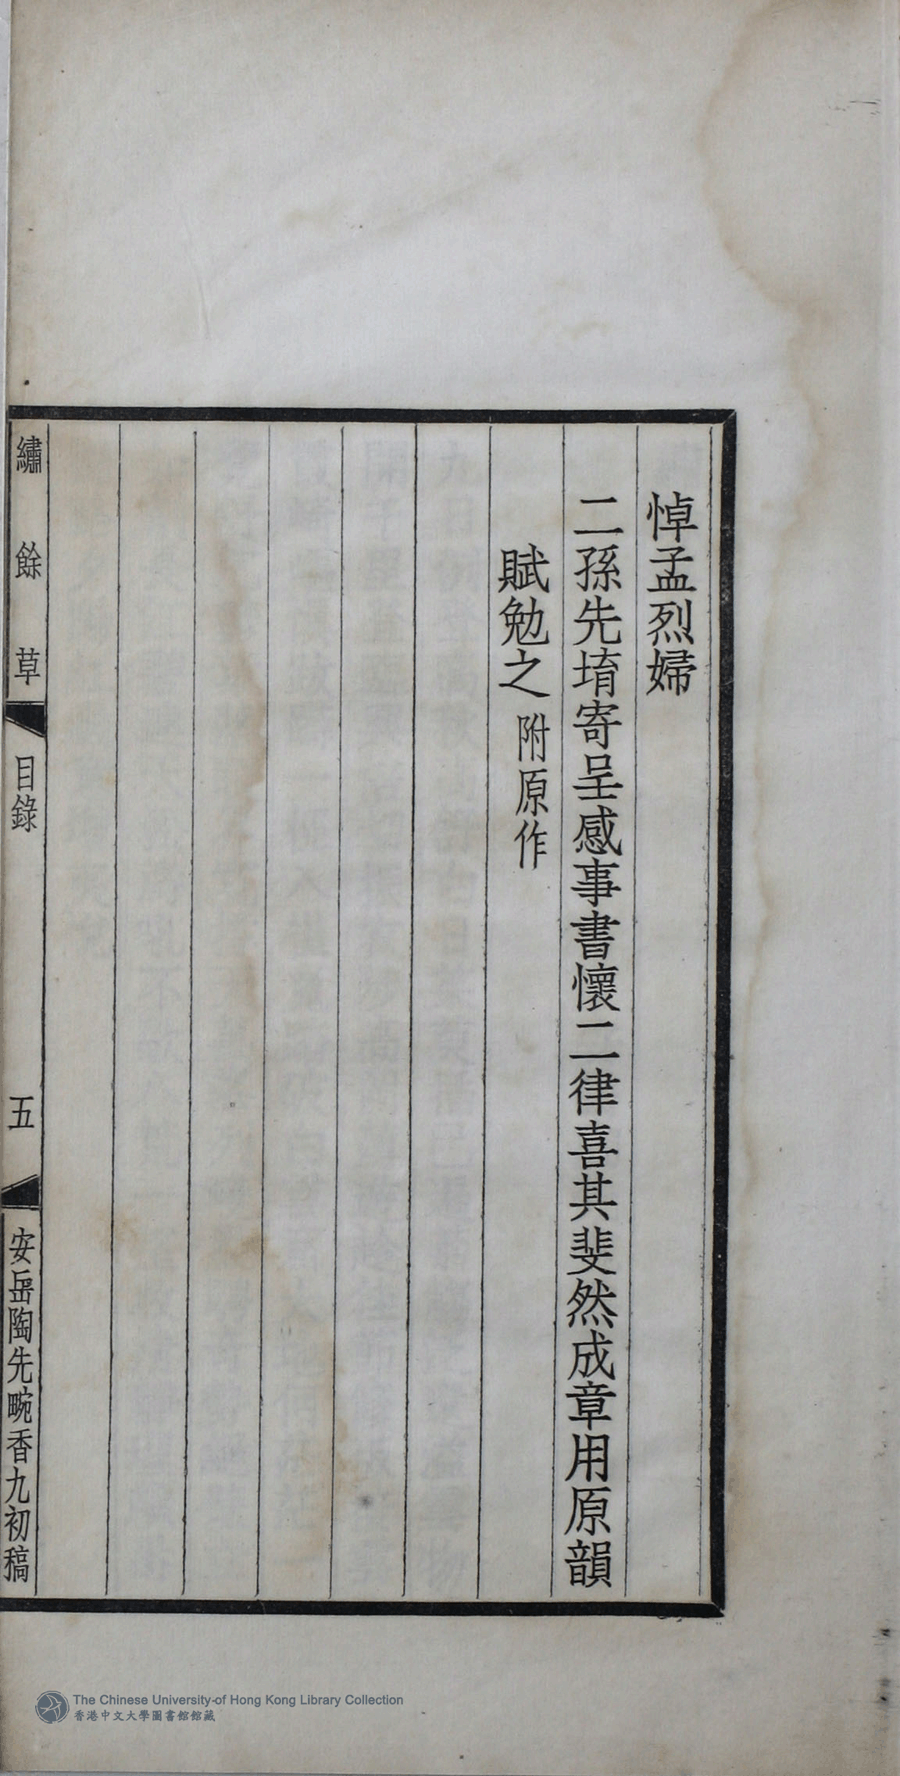 悼孟烈婦
二孫先堉寄呈感事書懷二律喜其斐然成章用原韻
賦勉之 附原作
繡餘草 目錄 五 安岳陶先畹香九初稿
The Chinese University of Hong Kong Library Collection
香港中文大學圖書館館藏